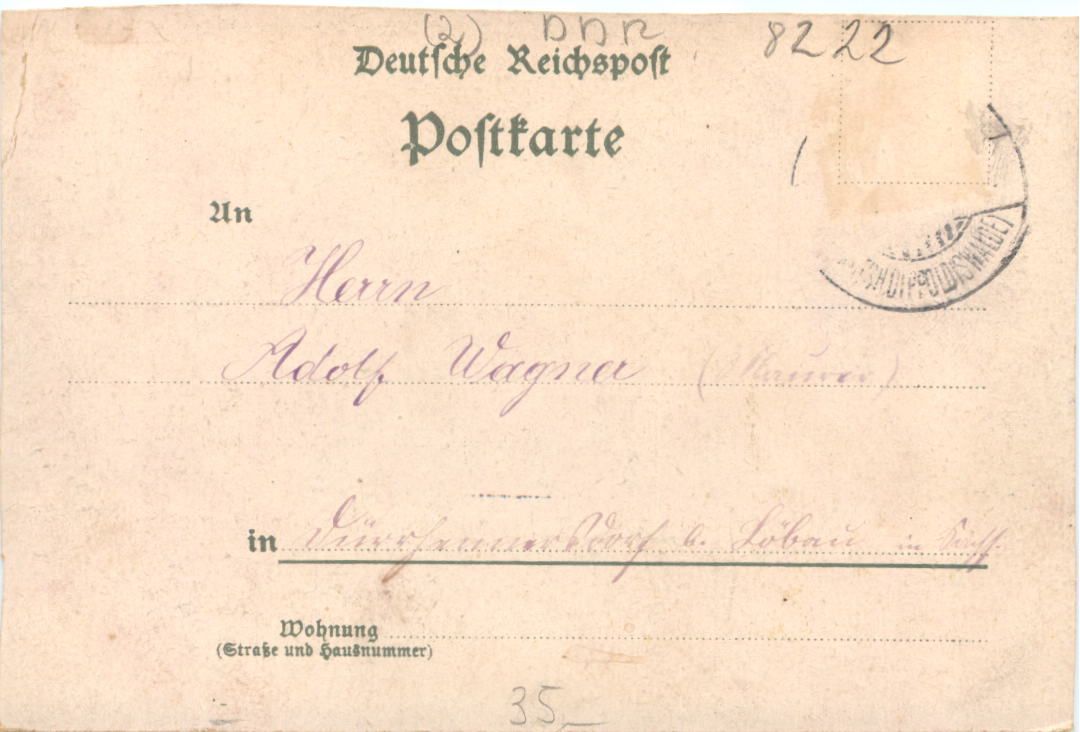 (2) DDR 8222
Deutsche Reichspost
Postkarte
An
Herrn
Adolf Wagner (Maurer)
DIPPOLDISWALDE)
in Dürrhennersdorf b. Löbau in Sachs.
Wohnung
(Straße und Hausnummer)
35,–